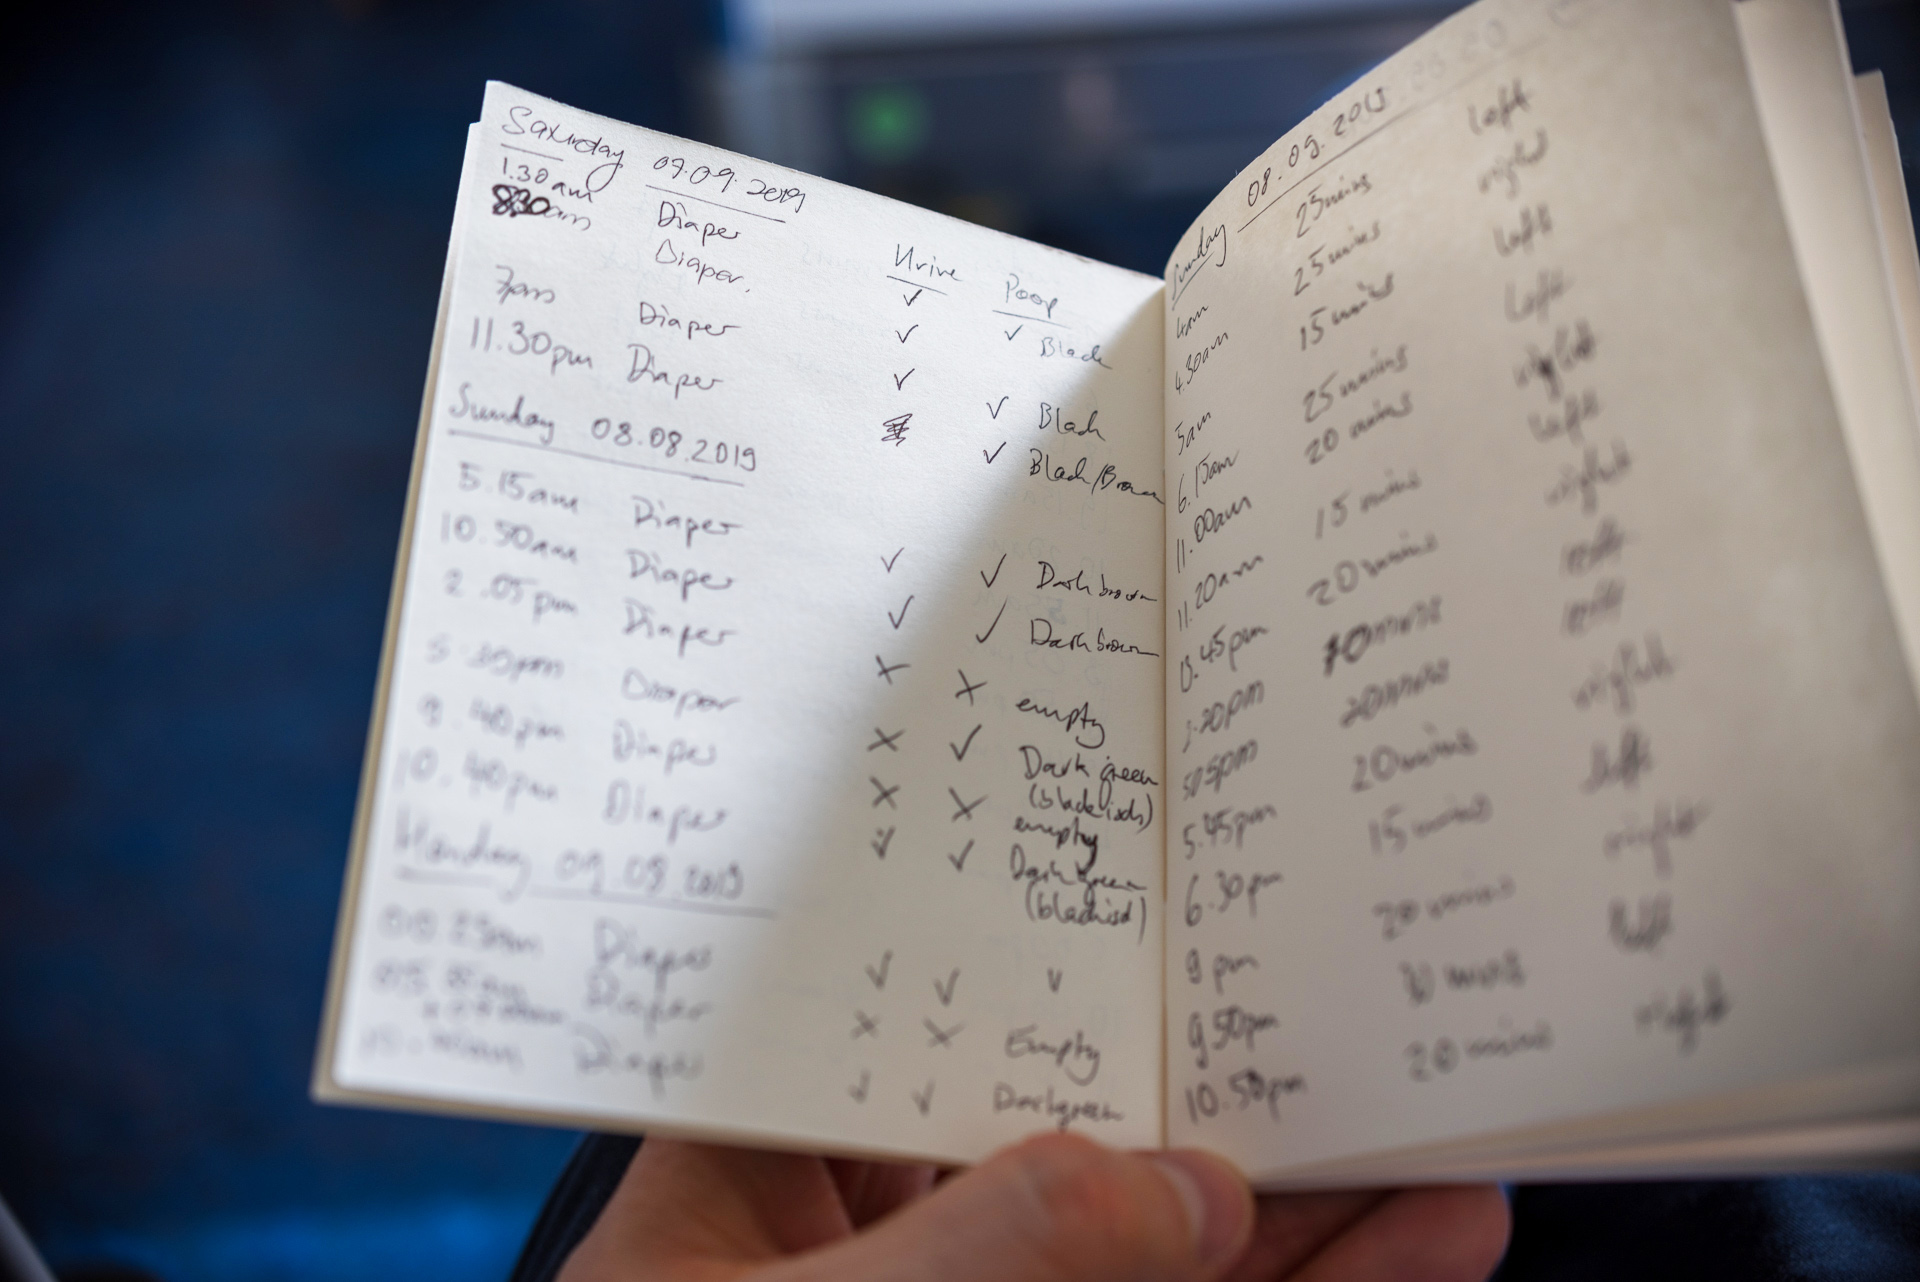 Saturday 07.09.2019
Urine Poop
1.30am Diaper ✓ ✓ Black
8.30am Diaper. ✓
7pm Diaper ✓ ✓ Black
11.30pm Diaper ✓ Black/Brown
Sunday 08.08.2019
5.15am Diaper ✓ ✓ Dark brown
10.50am Diaper ✓ ✓ Dark brown
2.05pm Diaper × × empty
5.30pm Diaper × ✓ Dark green
(blackisch)
9.40pm Diaper × × empty
10.40pm Diaper ✓ ✓ Dark green
(blackisch)
Monday 09.09.2019
Diaper ✓ ✓
Diaper × × Empty
Diaper ✓ ✓ Darkgreen
Sunday 08.09.2019
4am 25mins left
4.30am 25mins right
5am 15mins left
6.15am 25mins left
11.00am 20mins right
11.20am 15mins left
45pm 20mins right
20pm 10mins left
505pm 20mins left
5.45pm 20mins right
6.30pm 15mins left
9pm 20mins right
9 50pm mins left
10.50pm 20mins right